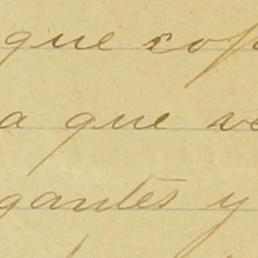 que cop
a que ve
gantes y